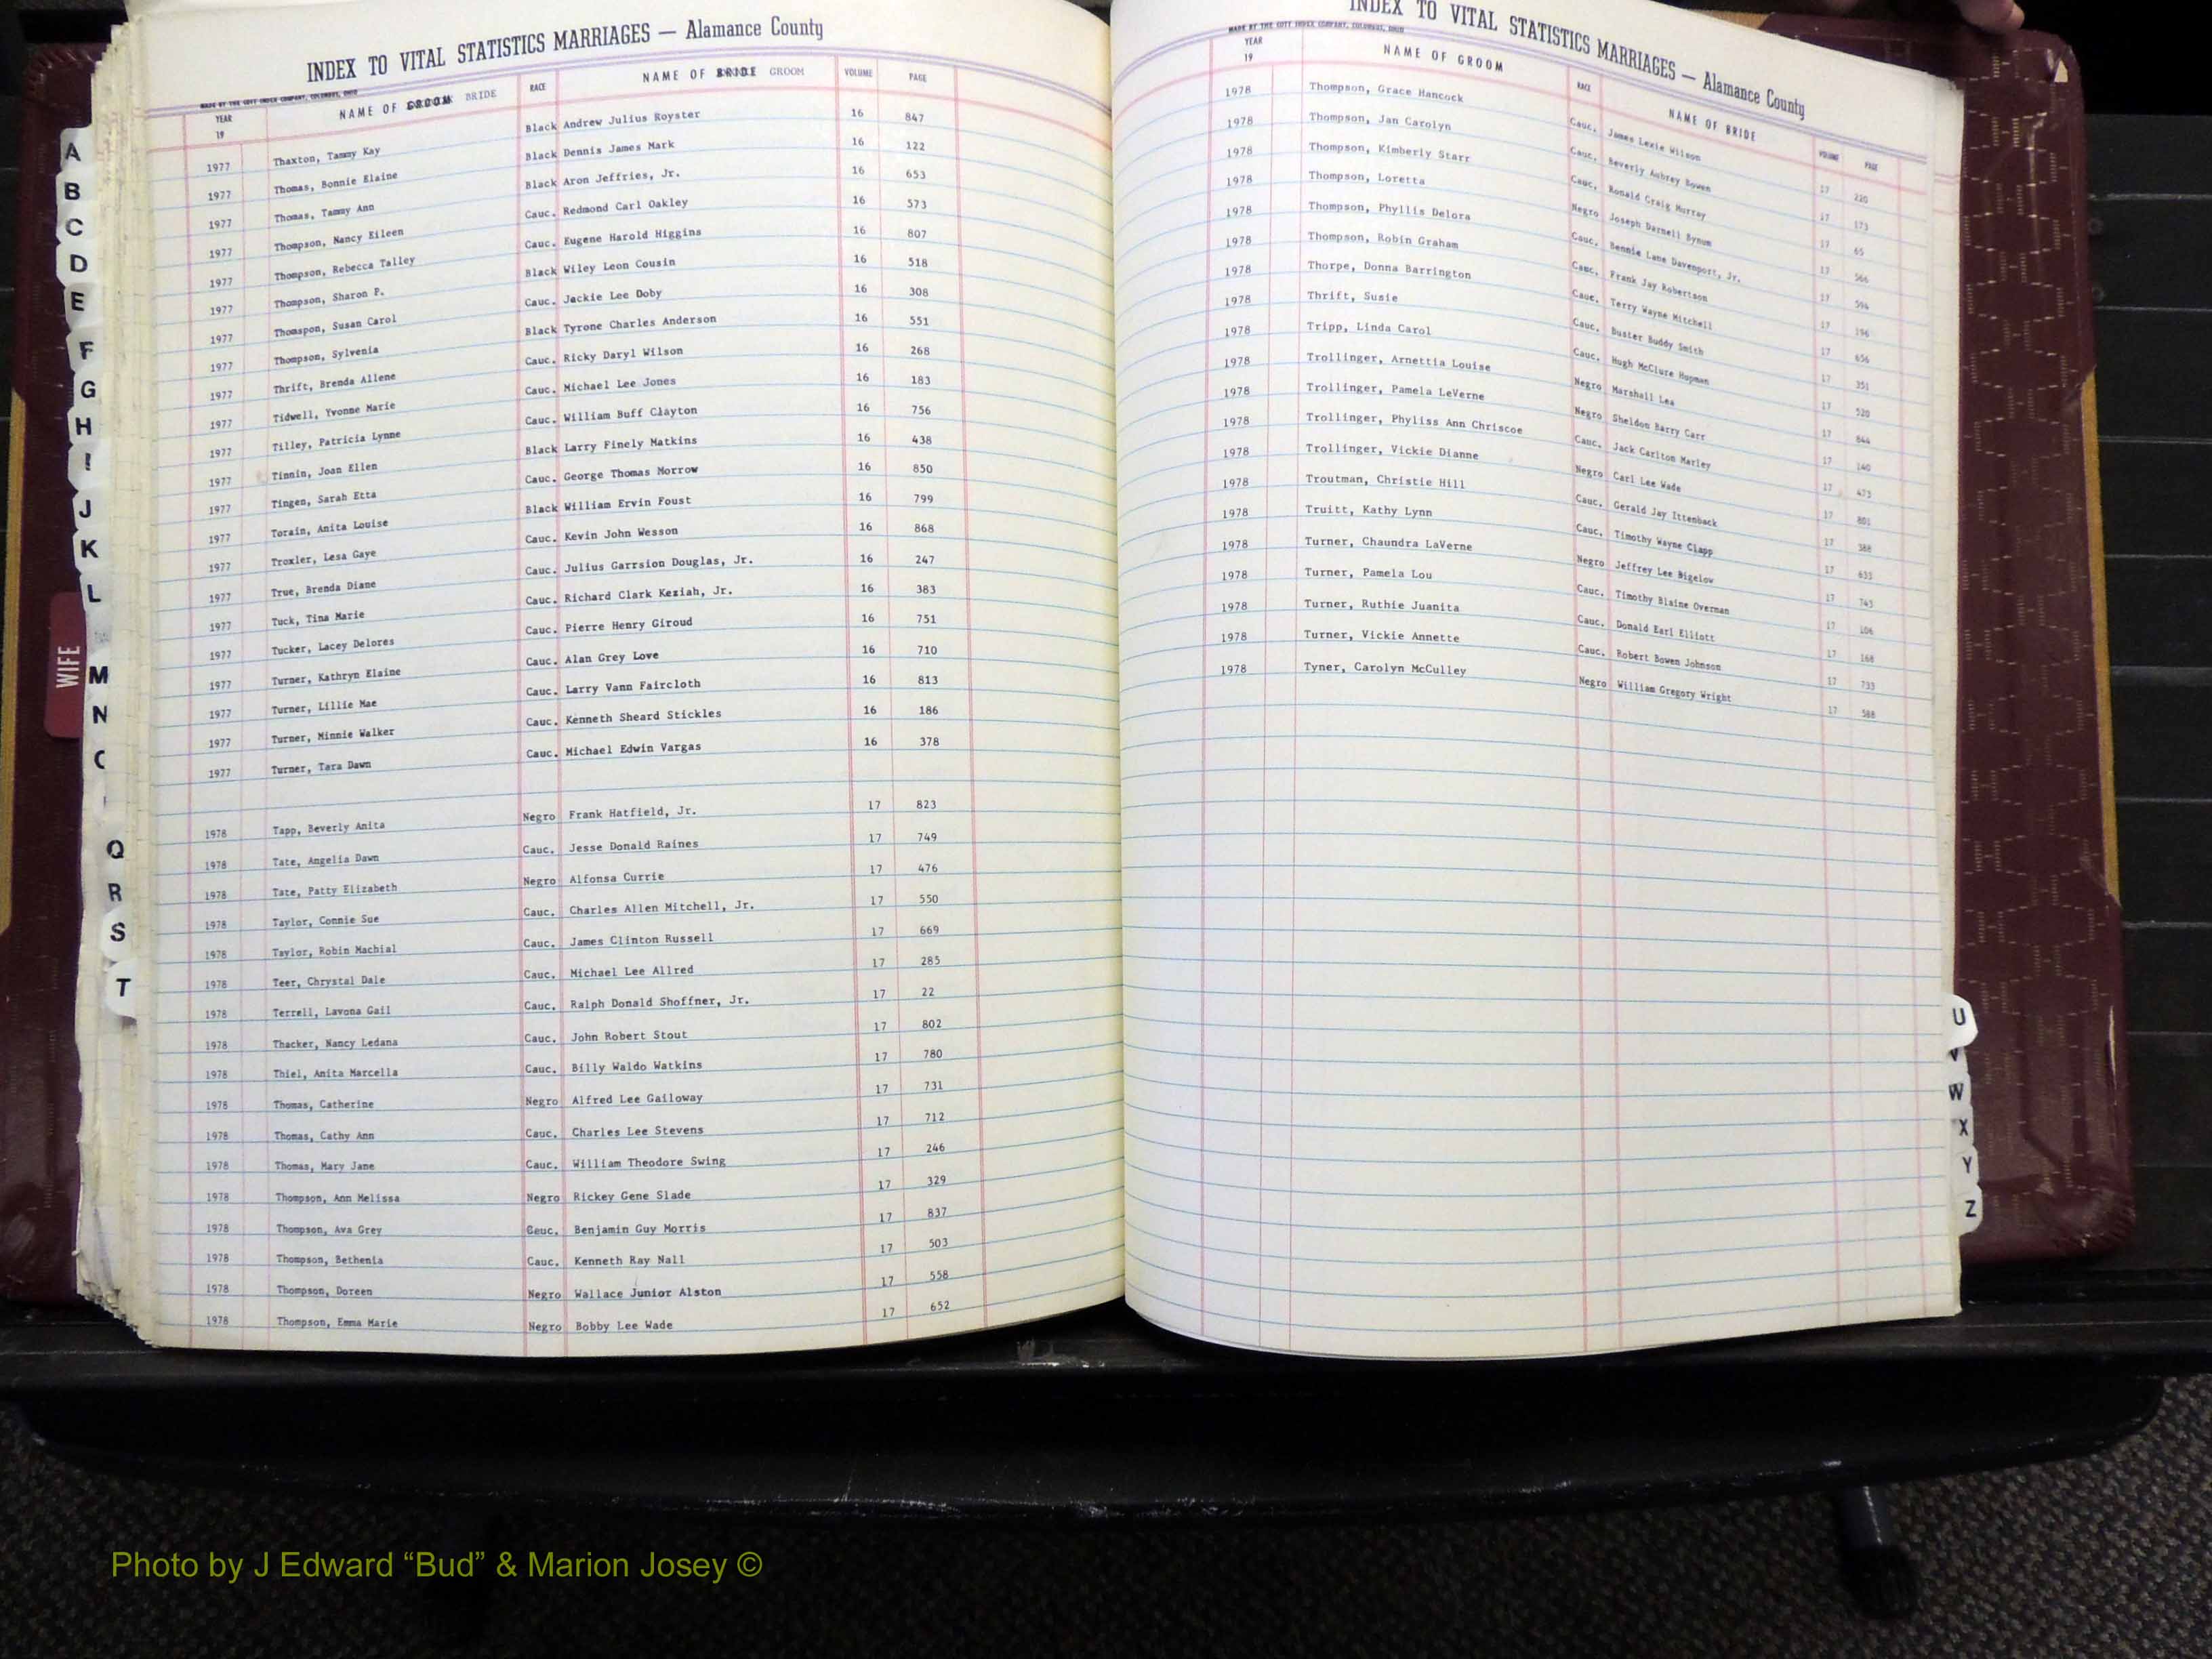 INDEX TO VITAL STATISTICS MARRIAGES — Alamance County
MADE BY THE COTT INDEX COMPANY, COLUMBUS, OHIO
YEAR 19 NAME OF GROOM BRIDE RACE NAME OF BRIDE GROOM VOLUME PAGE
1977 Thaxton, Tammy Kay Black Andrew Julius Royster 16 847
1977 Thomas, Bonnie Elaine Black Dennis James Mark 16 122
1977 Thomas, Tammy Ann Black Aron Jeffries, Jr. 16 653
1977 Thompson, Nancy Eileen Cauc. Redmond Carl Oakley 16 573
1977 Thompson, Rebecca Talley Cauc. Eugene Harold Higgins 16 807
1977 Thompson, Sharon P. Black Wiley Leon Cousin 16 518
1977 Thomspon, Susan Carol Cauc. Jackie Lee Doby 16 308
1977 Thompson, Sylvenia Black Tyrone Charles Anderson 16 551
1977 Thrift, Brenda Allene Cauc. Ricky Daryl Wilson 16 268
1977 Tidwell, Yvonne Marie Cauc. Michael Lee Jones 16 183
1977 Tilley, Patricia Lynne Cauc. William Buff Clayton 16 756
1977 Tinnin, Joan Ellen Black Larry Finely Matkins 16 438
1977 Tingen, Sarah Etta Cauc. George Thomas Morrow 16 850
1977 Torain, Anita Louise Black William Ervin Foust 16 799
1977 Troxler, Lesa Gaye Cauc. Kevin John Wesson 16 868
1977 True, Brenda Diane Cauc. Julius Garrsion Douglas, Jr. 16 247
1977 Tuck, Tina Marie Cauc. Richard Clark Keziah, Jr. 16 383
1977 Tucker, Lacey Delores Cauc. Pierre Henry Giroud 16 751
1977 Turner, Kathryn Elaine Cauc. Alan Grey Love 16 710
1977 Turner, Lillie Mae Cauc. Larry Vann Faircloth 16 813
1977 Turner, Minnie Walker Cauc. Kenneth Sheard Stickles 16 186
1977 Turner, Tara Dawn Cauc. Michael Edwin Vargas 16 378
1978 Tapp, Beverly Anita Negro Frank Hatfield, Jr. 17 823
1978 Tate, Angelia Dawn Cauc. Jesse Donald Raines 17 749
1978 Tate, Patty Elizabeth Negro Alfonsa Currie 17 476
1978 Taylor, Connie Sue Cauc. Charles Allen Mitchell, Jr. 17 550
1978 Taylor, Robin Machial Cauc. James Clinton Russell 17 669
1978 Teer, Chrystal Dale Cauc. Michael Lee Allred 17 285
1978 Terrell, Lavona Gail Cauc. Ralph Donald Shoffner, Jr. 17 22
1978 Thacker, Nancy Ledana Cauc. John Robert Stout 17 802
1978 Thiel, Anita Marcella Cauc. Billy Waldo Watkins 17 780
1978 Thomas, Catherine Negro Alfred Lee Gailoway 17 731
1978 Thomas, Cathy Ann Cauc. Charles Lee Stevens 17 712
1978 Thomas, Mary Jane Cauc. William Theodore Swing 17 246
1978 Thompson, Ann Melissa Negro Rickey Gene Slade 17 329
1978 Thompson, Ava Grey Cauc. Benjamin Guy Morris 17 837
1978 Thompson, Bethenia Cauc. Kenneth Ray Nall 17 503
1978 Thompson, Doreen Negro Wallace Junior Alston 17 558
1978 Thompson, Emma Marie Negro Bobby Lee Wade 17 652
A
B
C
D
E
F
G
H
I
J
K
L
M
N
Q
R
S
T
WIFE
INDEX TO VITAL STATISTICS MARRIAGES — Alamance County
MADE BY THE COTT INDEX COMPANY, COLUMBUS, OHIO
YEAR 19 NAME OF GROOM RACE NAME OF BRIDE VOLUME PAGE
1978 Thompson, Grace Hancock Cauc. James Lexie Wilson 17 220
1978 Thompson, Jan Carolyn Cauc. Beverly Aubrey Bowen 17 173
1978 Thompson, Kimberly Starr Cauc. Ronald Craig Murray 17 65
1978 Thompson, Loretta Negro Joseph Darnell Bynum 17 566
1978 Thompson, Phyllis Delora Cauc. Bennie Lane Davenport, Jr. 17 594
1978 Thompson, Robin Graham Cauc. Frank Jay Robertson 17 196
1978 Thorpe, Donna Barrington Cauc. Terry Wayne Mitchell 17 656
1978 Thrift, Susie Cauc. Buster Buddy Smith 17 351
1978 Tripp, Linda Carol Cauc. Hugh McClure Hopman 17 520
1978 Trollinger, Arnettia Louise Negro Marshall Lea 17 844
1978 Trollinger, Pamela LeVerne Negro Sheldon Barry Carr 17 140
1978 Trollinger, Phyliss Ann Chriscoe Cauc. Jack Carlton Marley 17 473
1978 Trollinger, Vickie Dianne Negro Carl Lee Wade 17 801
1978 Troutman, Christie Hill Cauc. Gerald Jay Ittenback 17 388
1978 Truitt, Kathy Lynn Cauc. Timothy Wayne Clapp 17 633
1978 Turner, Chaundra LaVerne Negro Jeffrey Lee Bigelow 17 743
1978 Turner, Pamela Lou Cauc. Timothy Blaine Overman 17 106
1978 Turner, Ruthie Juanita Cauc. Donald Earl Elliott 17 168
1978 Turner, Vickie Annette Cauc. Robert Bowen Johnson 17 733
1978 Tyner, Carolyn McCulley Negro William Gregory Wright 17 588
U
V
W
X
Y
Z
Photo by J Edward “Bud” & Marion Josey ©